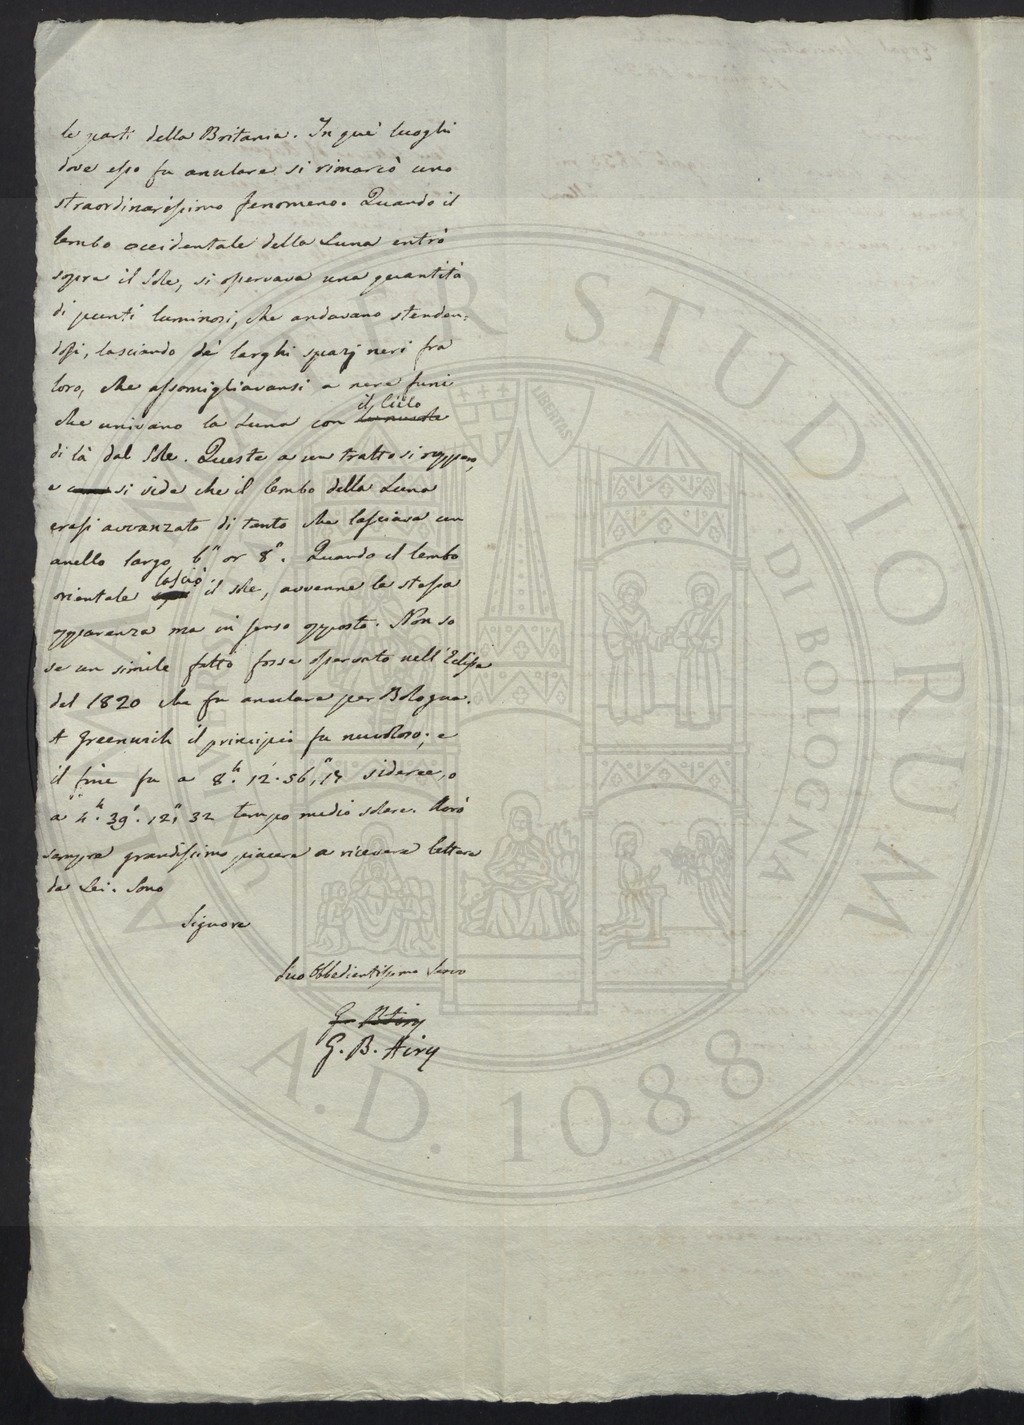 le parti della Britania. In que' luoghi
dove esso fu anulare si rimarcò uno
straordinarissimo fenomeno. Quando il
lembo occidentale della Luna entrò
sopra il Sole, si osservava una quantità
di punti luminosi, che andavano stenden:
dosi, lasciando de' larghi spazj neri fra
loro, che assomigliavansi a nere funi
che univano la Luna con il Cielo
di là dal Sole. Queste a un tratto si ruppero,
e si vide che il lembo della Luna
erasi avvanzato di tanto che lasciava un
anello largo 6" or 8". Quando il lembo
orientale lasciò il sole, avvenne la stessa
apparenza ma in senso opposto. Non so
se un simile fatto fosse osservato nell'Eclisse
del 1820 che fu anulare per Bologna.
A Greenwich il principio fu nuvoloso; e
il fine fu a 8.h 12'. 56", 14 sideree, o
a 4.h 39'. 12", 32 tempo medio solare. Avrò
sempre grandissimo piacere a ricevere lettere
da Lei. Sono
Signore
Suo Obbedientissimo Servo
G. B. Airy
ALMA MATER STUDIORUM
UNIVERSITÀ DI BOLOGNA
LIBERTAS
A.D. 1088